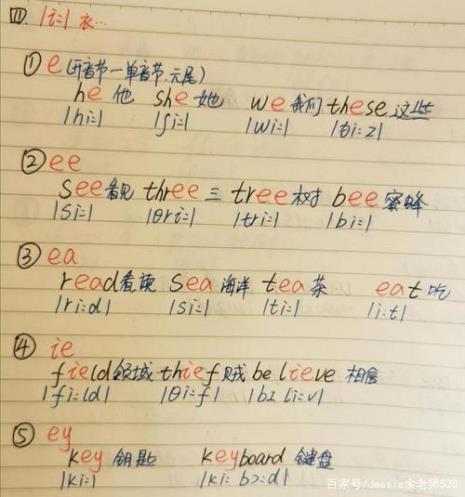 四. /i:/ 衣…
① e (开音节—单音节.元尾)
he 他 she 她 we 我们 these 这些
/hi:/ /ʃi:/ /wi:/ /ði:z/
② ee
see 看见 three 三 tree 树 bee 蜜蜂
/si:/ /θri:/ /tri:/ /bi:/
③ ea
read 看读 sea 海洋 tea 茶 eat 吃
/ri:d/ /si:/ /ti:/ /i:t/
④ ie
field 领域 thief 贼 believe 相信
/fi:ld/ /θi:f/ /bɪ li:v/
⑤ ey
key 钥匙 keyboard 键盘
/ki:/ /ki: bɔ:d/
百家号/Jessie余老师520